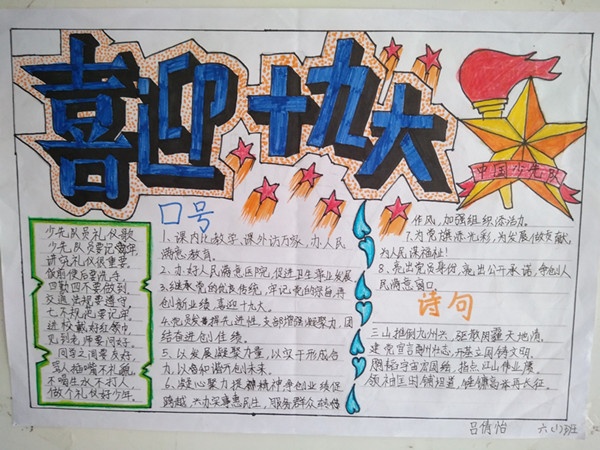 喜迎十九大
中国少先队
少先队员礼仪歌
少先队员要记敬年
讲究礼仪很重要
饭前便后要洗手
四勤四不要做到
交通法规要遵守
七不规范要记牢
进校戴好红领巾
见到老师要问好
同学之间要友好
骂人插嘴不礼貌
不喝生水不打人
做个礼仪好少年
口号
1、课内比教学,课外访万家,办人民
满意教育。
2、办好人民满意医院,促进卫生事业发展
3、继承党的优良传统,牢记党的宗旨,再
创新业绩 喜迎十九大。
4、党员发挥先进性,支部增强凝聚力,团
结奋进创佳绩。
5、以发展凝聚力量,以实干形成合
力,以
6、凝心聚力提神精神争创业绩促
跨越,兴办实事惠民生,服务群众
作风,加强组织添活力。
7、为党旗添光彩,为发展做贡献,
为人民谋福祉!
8、亮出党员身份,亮出公开承诺,争创人
民满意窗口
诗句
三山推倒九州兴,驱散阴霾天地清。
建党宣言
指点江山伟业展
领袖
吕倩怡
六(1)班